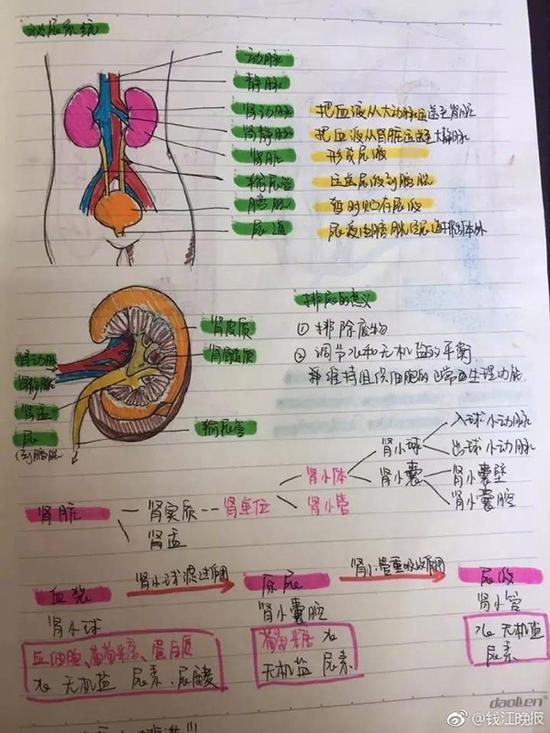 泌尿系统
动脉
静脉
肾动脉 把血液从大动脉运送至肾脏
肾静脉 把血液从肾脏运送至大静脉
肾脏 形成尿液
输尿管 运送尿液到膀胱
膀胱 暂时贮存尿液
尿道 尿液由膀胱经尿道排到体外
排尿的意义
肾皮质
① 排除废物
肾髓质
② 调节水和无机盐的平衡
肾动脉
肾静脉
并维持组织细胞的正常生理功能
肾盂
尿
输尿管
(到膀胱)
入球小动脉
肾小球
出球小动脉
肾小体
肾小囊
肾小囊壁
肾小囊腔
肾脏
肾实质
肾单位
肾小管
肾盂
血浆 肾小球滤过作用 原尿 肾小管重吸收作用 尿液
肾小球 肾小囊腔 肾小管
血细胞、葡萄糖、蛋白质 葡萄糖 水 水 无机盐
水 无机盐 尿素、尿酸 无机盐 尿素 尿素
daolen
@钱江晚报